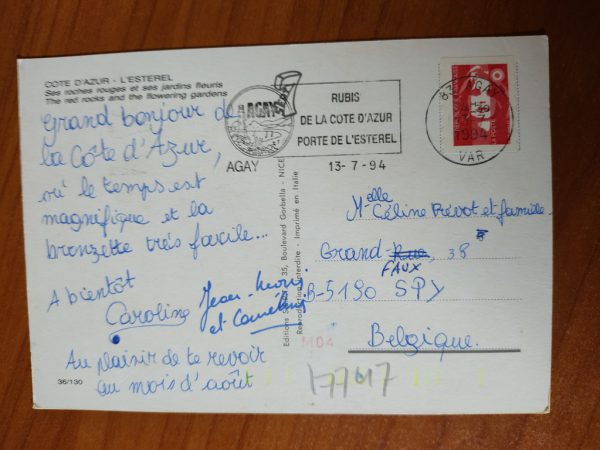 COTE D'AZUR - L'ESTEREL
Ses roches rouges et ses jardins fleuris
The red rocks and the flowering gardens
Grand bonjour de
la Côte d'Azur,
où le temps est
magnifique et la
bronzette très facile...
A bientôt
Caroline Jean-
et
Au plaisir de te revoir
au mois d'août
36/130
AGAY
AGAY
RUBIS
DE LA COTE D'AZUR
PORTE DE L'ESTEREL
13-7-94
83 AGAY
1994
VAR
Editions 35, Boulevard Gorbella - NICE
Reproduction interdite - Imprimé en Italie
Melle Céline Prévot et famille
Grand Rue, 38
FAUX
B-5190 SPY
Belgique
M04
17747